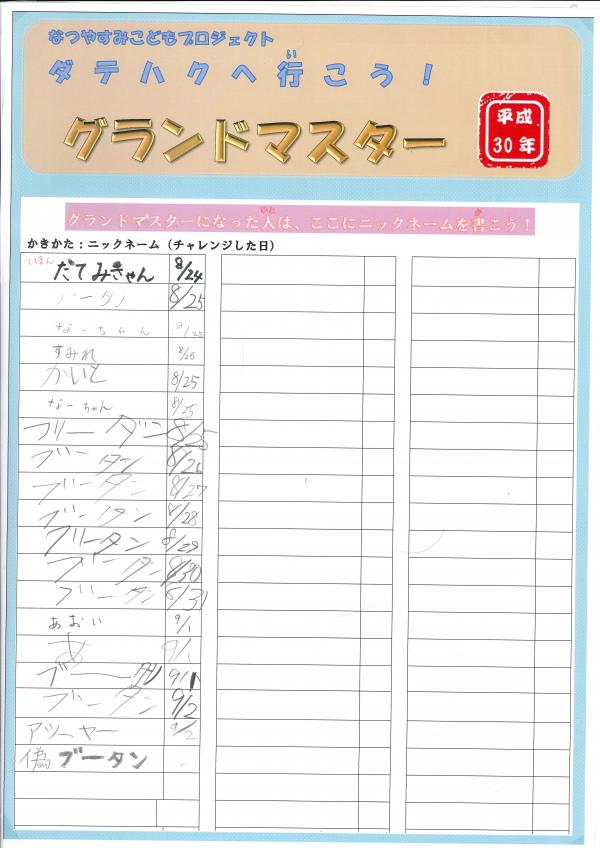 なつやすみこどもプロジェクト
ダテハクへ行こう！
い
グランドマスター
平成
30年
グランドマスターになった人は、ここにニックネームを書こう！
ひと
か
かきかた：ニックネーム（チャレンジした日）
みほん だてみきゃん 8/24
8/25
なーちゃん 8/25
すみれ 8/25
かいと 8/25
なーちゃん 8/25
フリーダン 8/25
ブータン 8/26
ブータン 8/27
ブータン 8/28
ブータン 8/29
ブータン 8/30
ブータン 8/31
あおい 9/1
あ 9/1
ブータン 9/1
ブータン 9/2
アツーヤー 9/2
偽ブータン